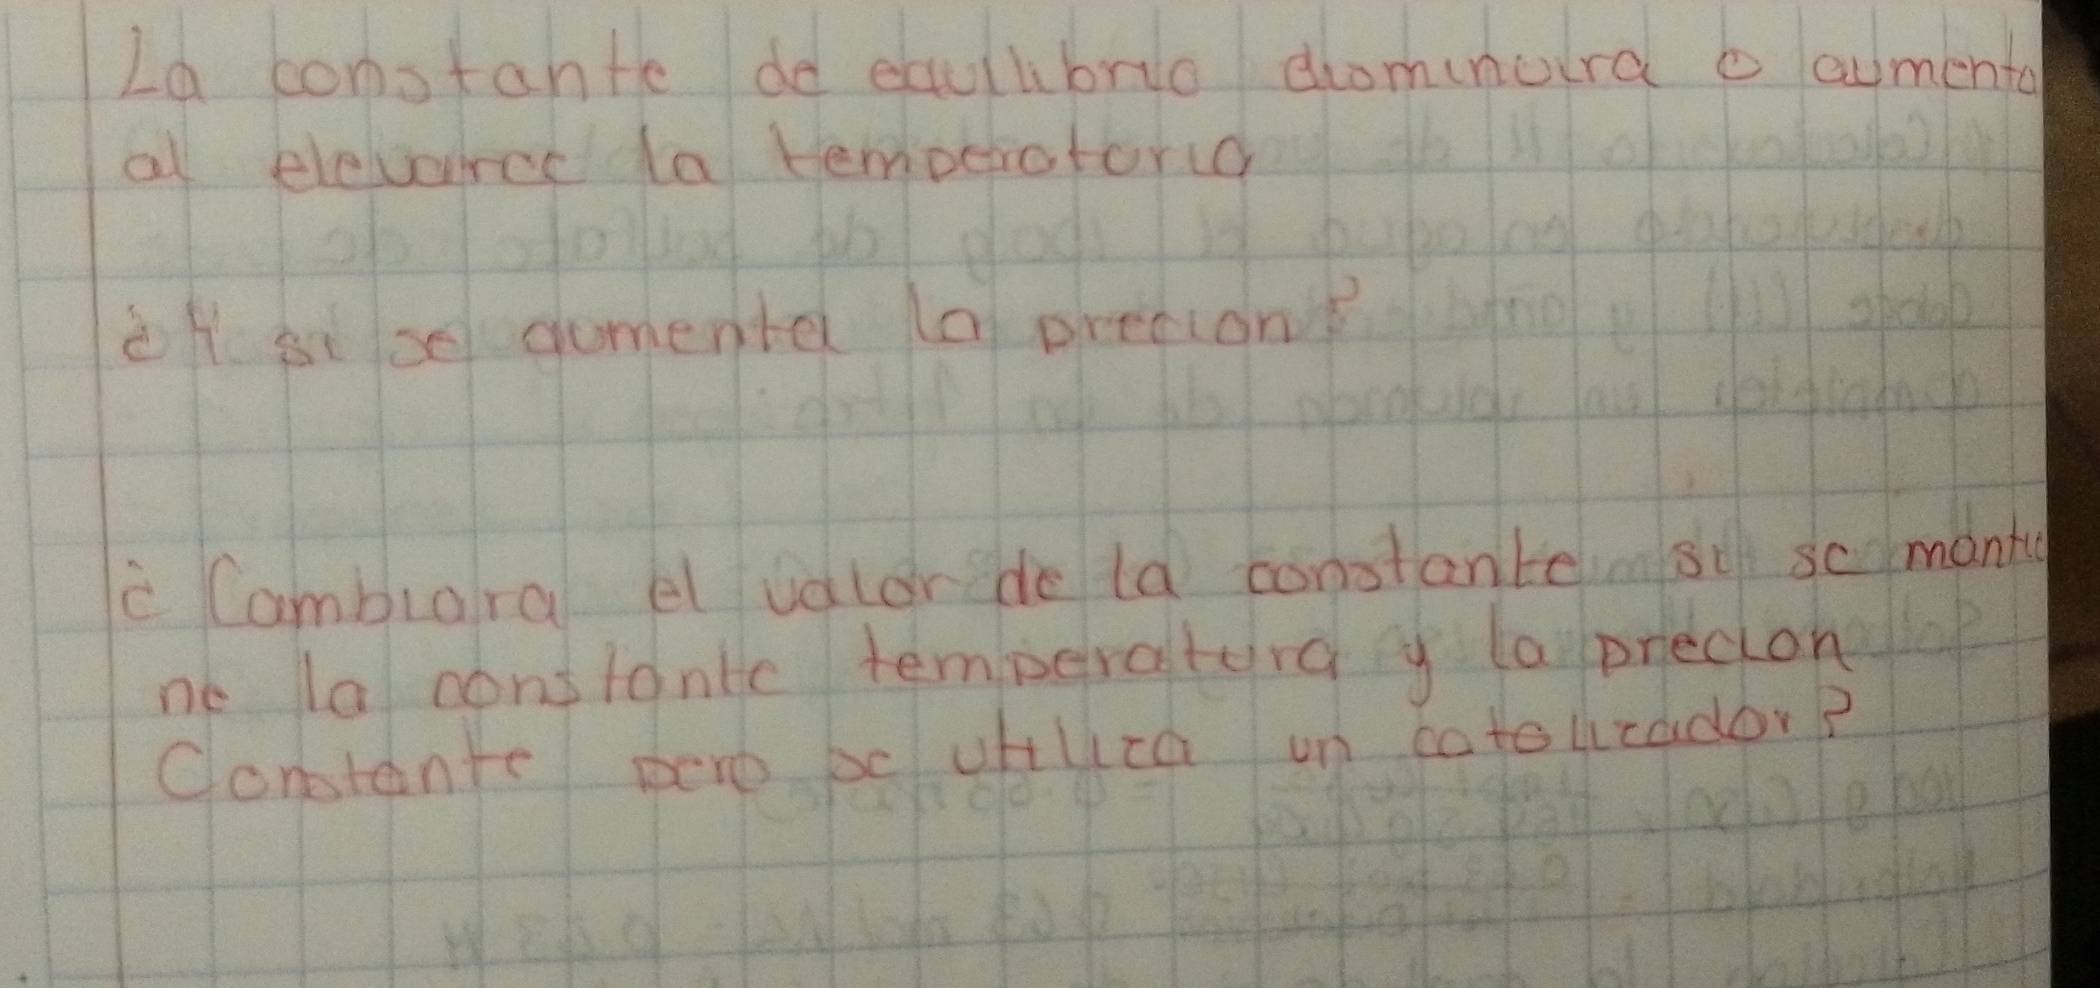 La constante de equilibrio disminuira o aumenta
al elevarce la temperaturia
¿Y si se aumenta la precion?
¿Cambiara el valor de la constante si se mantie
ne la constante temperatura y la precion
Constante pero se utiliza un catolizador?